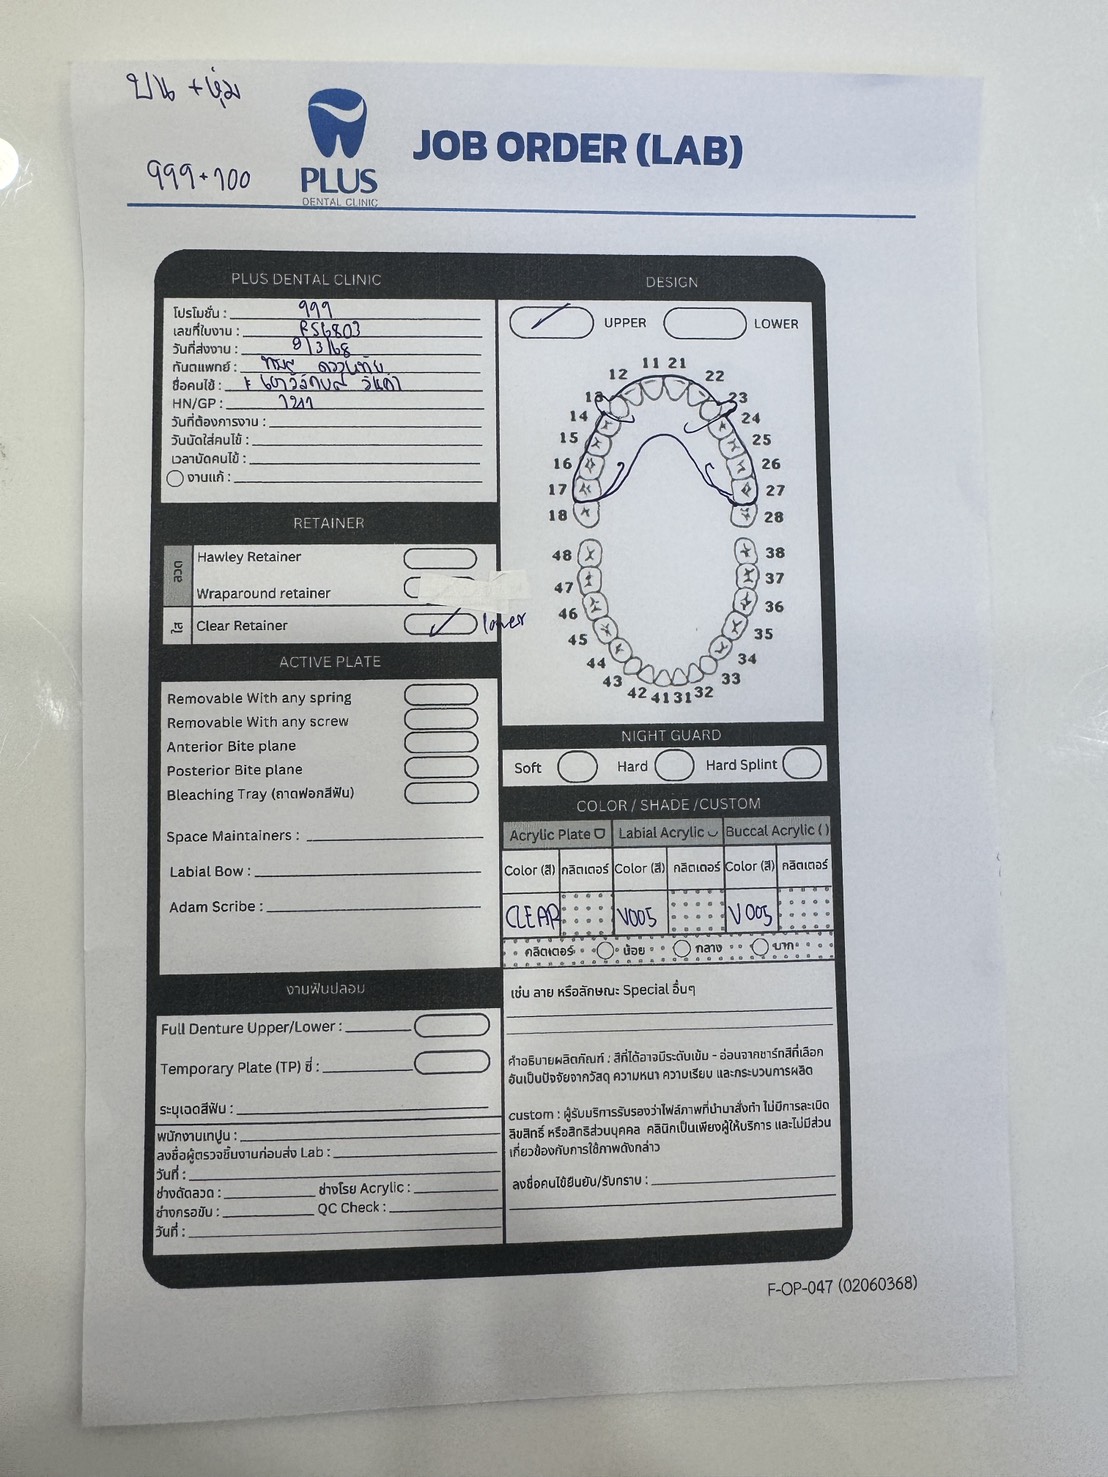 บน + หุ้ม
999 + 100
PLUS
DENTAL CLINIC
JOB ORDER (LAB)
PLUS DENTAL CLINIC
โปรโมชั่น : 999
เลขที่ใบงาน : RS6803
วันที่ส่งงาน : 8/3/68
ทันตแพทย์ :
ชื่อคนไข้ :
HN/GP :
วันที่ต้องการงาน :
วันนัดใส่คนไข้ :
เวลานัดคนไข้ :
งานแก้ :
RETAINER
ลวด
Hawley Retainer
Wraparound retainer
ใส
Clear Retainer
lower
ACTIVE PLATE
Removable With any spring
Removable With any screw
Anterior Bite plane
Posterior Bite plane
Bleaching Tray (ถาดฟอกสีฟัน)
Space Maintainers :
Labial Bow :
Adam Scribe :
งานฟันปลอม
Full Denture Upper/Lower :
Temporary Plate (TP) ซี่ :
ระบุเฉดสีฟัน :
พนักงานเทปูน :
ลงชื่อผู้ตรวจชิ้นงานก่อนส่ง Lab :
วันที่ :
ช่างดัดลวด : ช่างโรย Acrylic :
ช่างกรอขัด : QC Check :
วันที่ :
DESIGN
UPPER LOWER
11 21
12 22
13 23
14 24
15 25
16 26
17 27
18 28
48 38
47 37
46 36
45 35
44 34
43 33
42 41 31 32
NIGHT GUARD
Soft Hard Hard Splint
COLOR / SHADE /CUSTOM
Acrylic Plate Labial Acrylic Buccal Acrylic ( )
Color (สี) กลิตเตอร์ Color (สี) กลิตเตอร์ Color (สี) กลิตเตอร์
CLEAR V005 V005
กลิตเตอร์ น้อย กลาง มาก
เช่น ลาย หรือลักษณะ Special อื่นๆ
คำอธิบายผลิตภัณฑ์ : สีที่ได้อาจมีระดับเข้ม - อ่อนจากชาร์ทสีที่เลือก
อันเป็นปัจจัยจากวัสดุ ความหนา ความเรียบ และกระบวนการผลิต
custom : ผู้รับบริการรับรองว่าไฟล์ภาพที่นำมาสั่งทำ ไม่มีการละเมิด
ลิขสิทธิ์ หรือสิทธิส่วนบุคคล คลินิกเป็นเพียงผู้ให้บริการ และไม่มีส่วน
เกี่ยวข้องกับการใช้ภาพดังกล่าว
ลงชื่อคนไข้ยืนยัน/รับทราบ :
F-OP-047 (02060368)